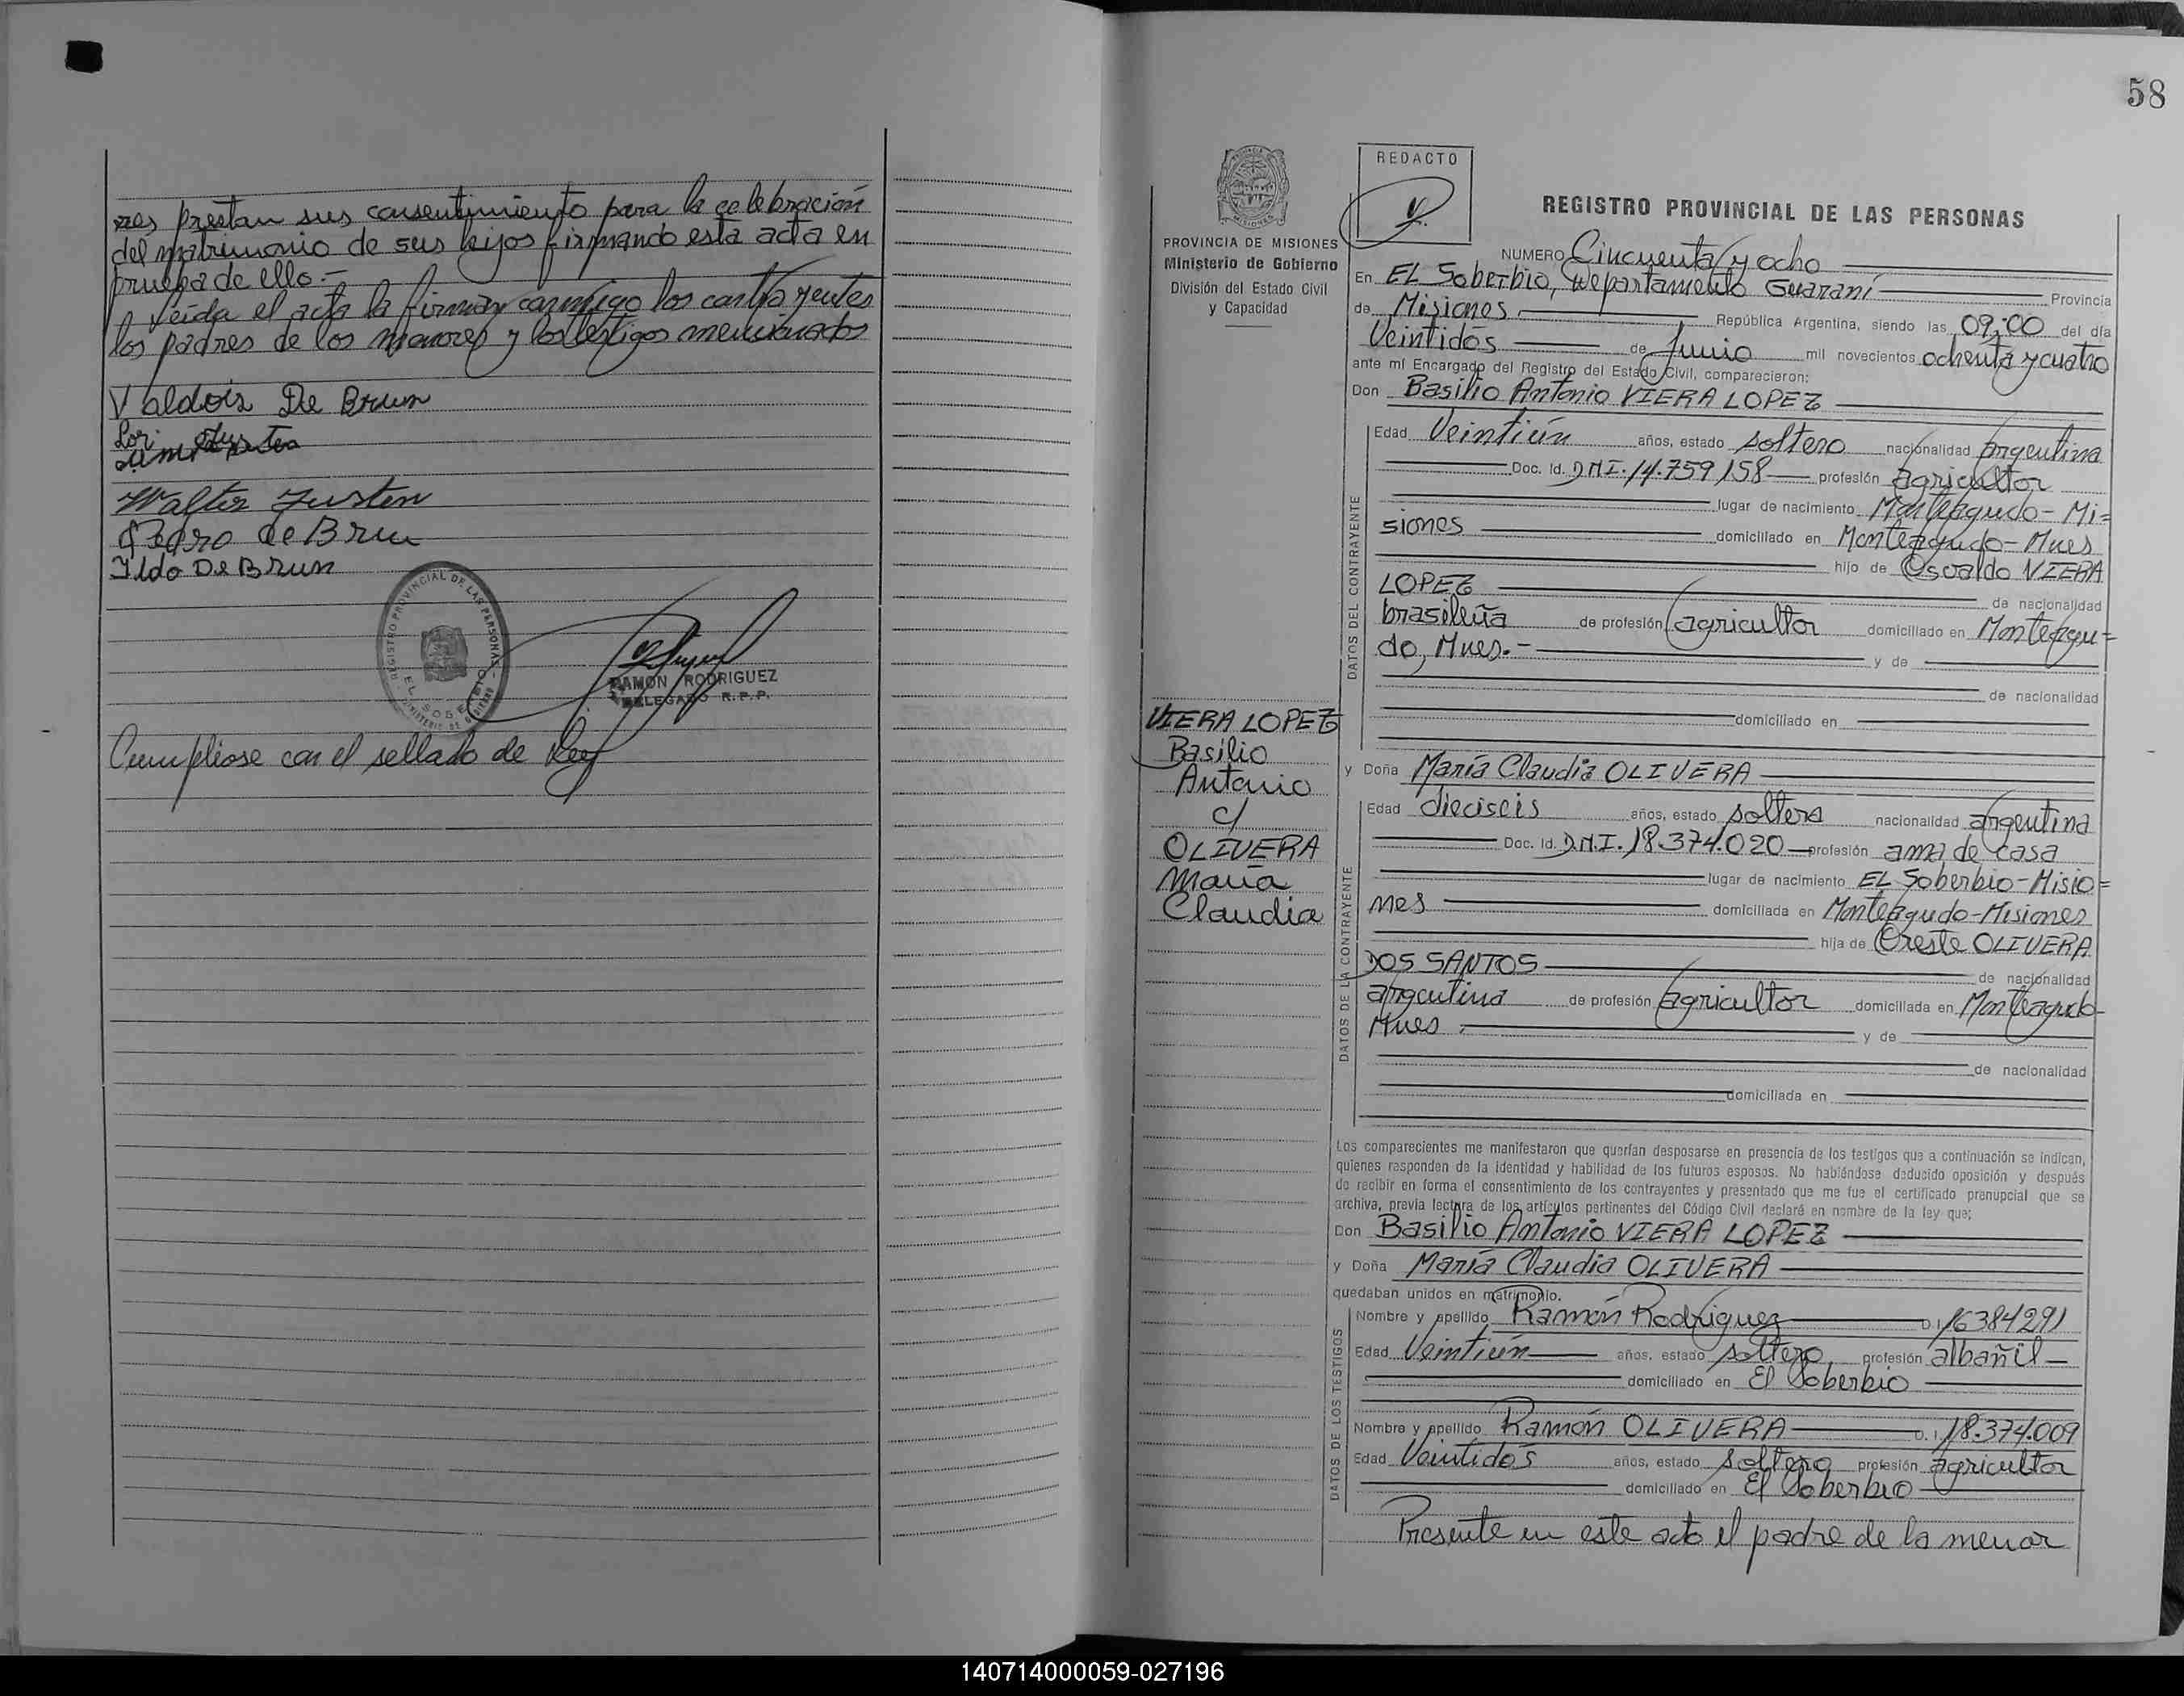 res prestan sus consentimiento para la celebración
del matrimonio de sus hijos firmando esta acta en
prueba de ello.-
Leída el acta la firman conmigo los contrayentes
los padres de los menores y los testigos mencionados
Valdoir De Brum
Lori
Walter Justen
Pedro de Brum
Ildo De Brun
REGISTRO PROVINCIAL DE LAS PERSONAS
RAMON RODRIGUEZ
DELEGADO R.P.P.
Cumpliose con el sellado de Ley
58
PROVINCIA DE MISIONES
Ministerio de Gobierno
División del Estado Civil
y Capacidad
VIERA LOPEZ
Basilio
Antonio
c/
OLIVERA
María
Claudia
REDACTO
REGISTRO PROVINCIAL DE LAS PERSONAS
NUMERO Cincuenta y ocho
En EL Soberbio, Departamento Guaraní Provincia
de Misiones República Argentina, siendo las 09:00 del día
Veintidós de Junio mil novecientos ochenta y cuatro
ante mí Encargado del Registro del Estado Civil, comparecieron:
Don Basilio Antonio VIERA LOPEZ
DATOS DEL CONTRAYENTE
Edad Veintiún años, estado soltero nacionalidad argentina
Doc. Id. D.N.I. 14.759.158 profesión agricultor
lugar de nacimiento Monteagudo - Mi=
siones domiciliado en Monteagudo - Mnes
hijo de Osvaldo VIERA
LOPEZ de nacionalidad
brasileña de profesión agricultor domiciliado en Monteagu=
do, Mnes.- y de
de nacionalidad
domiciliado en
y Doña María Claudia OLIVERA
DATOS DE LA CONTRAYENTE
Edad dieciseis años, estado soltera nacionalidad argentina
Doc. Id. D.N.I. 18.374.020 profesión ama de casa
lugar de nacimiento EL Soberbio - Misio=
nes domiciliada en Monteagudo - Misiones
hija de Oreste OLIVERA
DOS SANTOS de nacionalidad
argentina de profesión agricultor domiciliada en Monteagudo-
Mnes. y de
de nacionalidad
domiciliada en
Los comparecientes me manifestaron que querían desposarse en presencia de los testigos que a continuación se indican,
quienes responden de la identidad y habilidad de los futuros esposos. No habiéndose deducido oposición y después
de recibir en forma el consentimiento de los contrayentes y presentado que me fue el certificado prenupcial que se
archiva, previa lectura de los artículos pertinentes del Código Civil declaré en nombre de la ley que;
Don Basilio Antonio VIERA LOPEZ
y Doña María Claudia OLIVERA
quedaban unidos en matrimonio.
DATOS DE LOS TESTIGOS
Nombre y apellido Ramón Rodriguez D.I. 16384291
Edad Veintiún años, estado soltero profesión albañil
domiciliado en El Soberbio
Nombre y apellido Ramón OLIVERA D.I. 18.374.009
Edad Veintidós años, estado soltero profesión agricultor
domiciliado en El Soberbio
Presente en este acto el padre de la menor
140714000059-027196